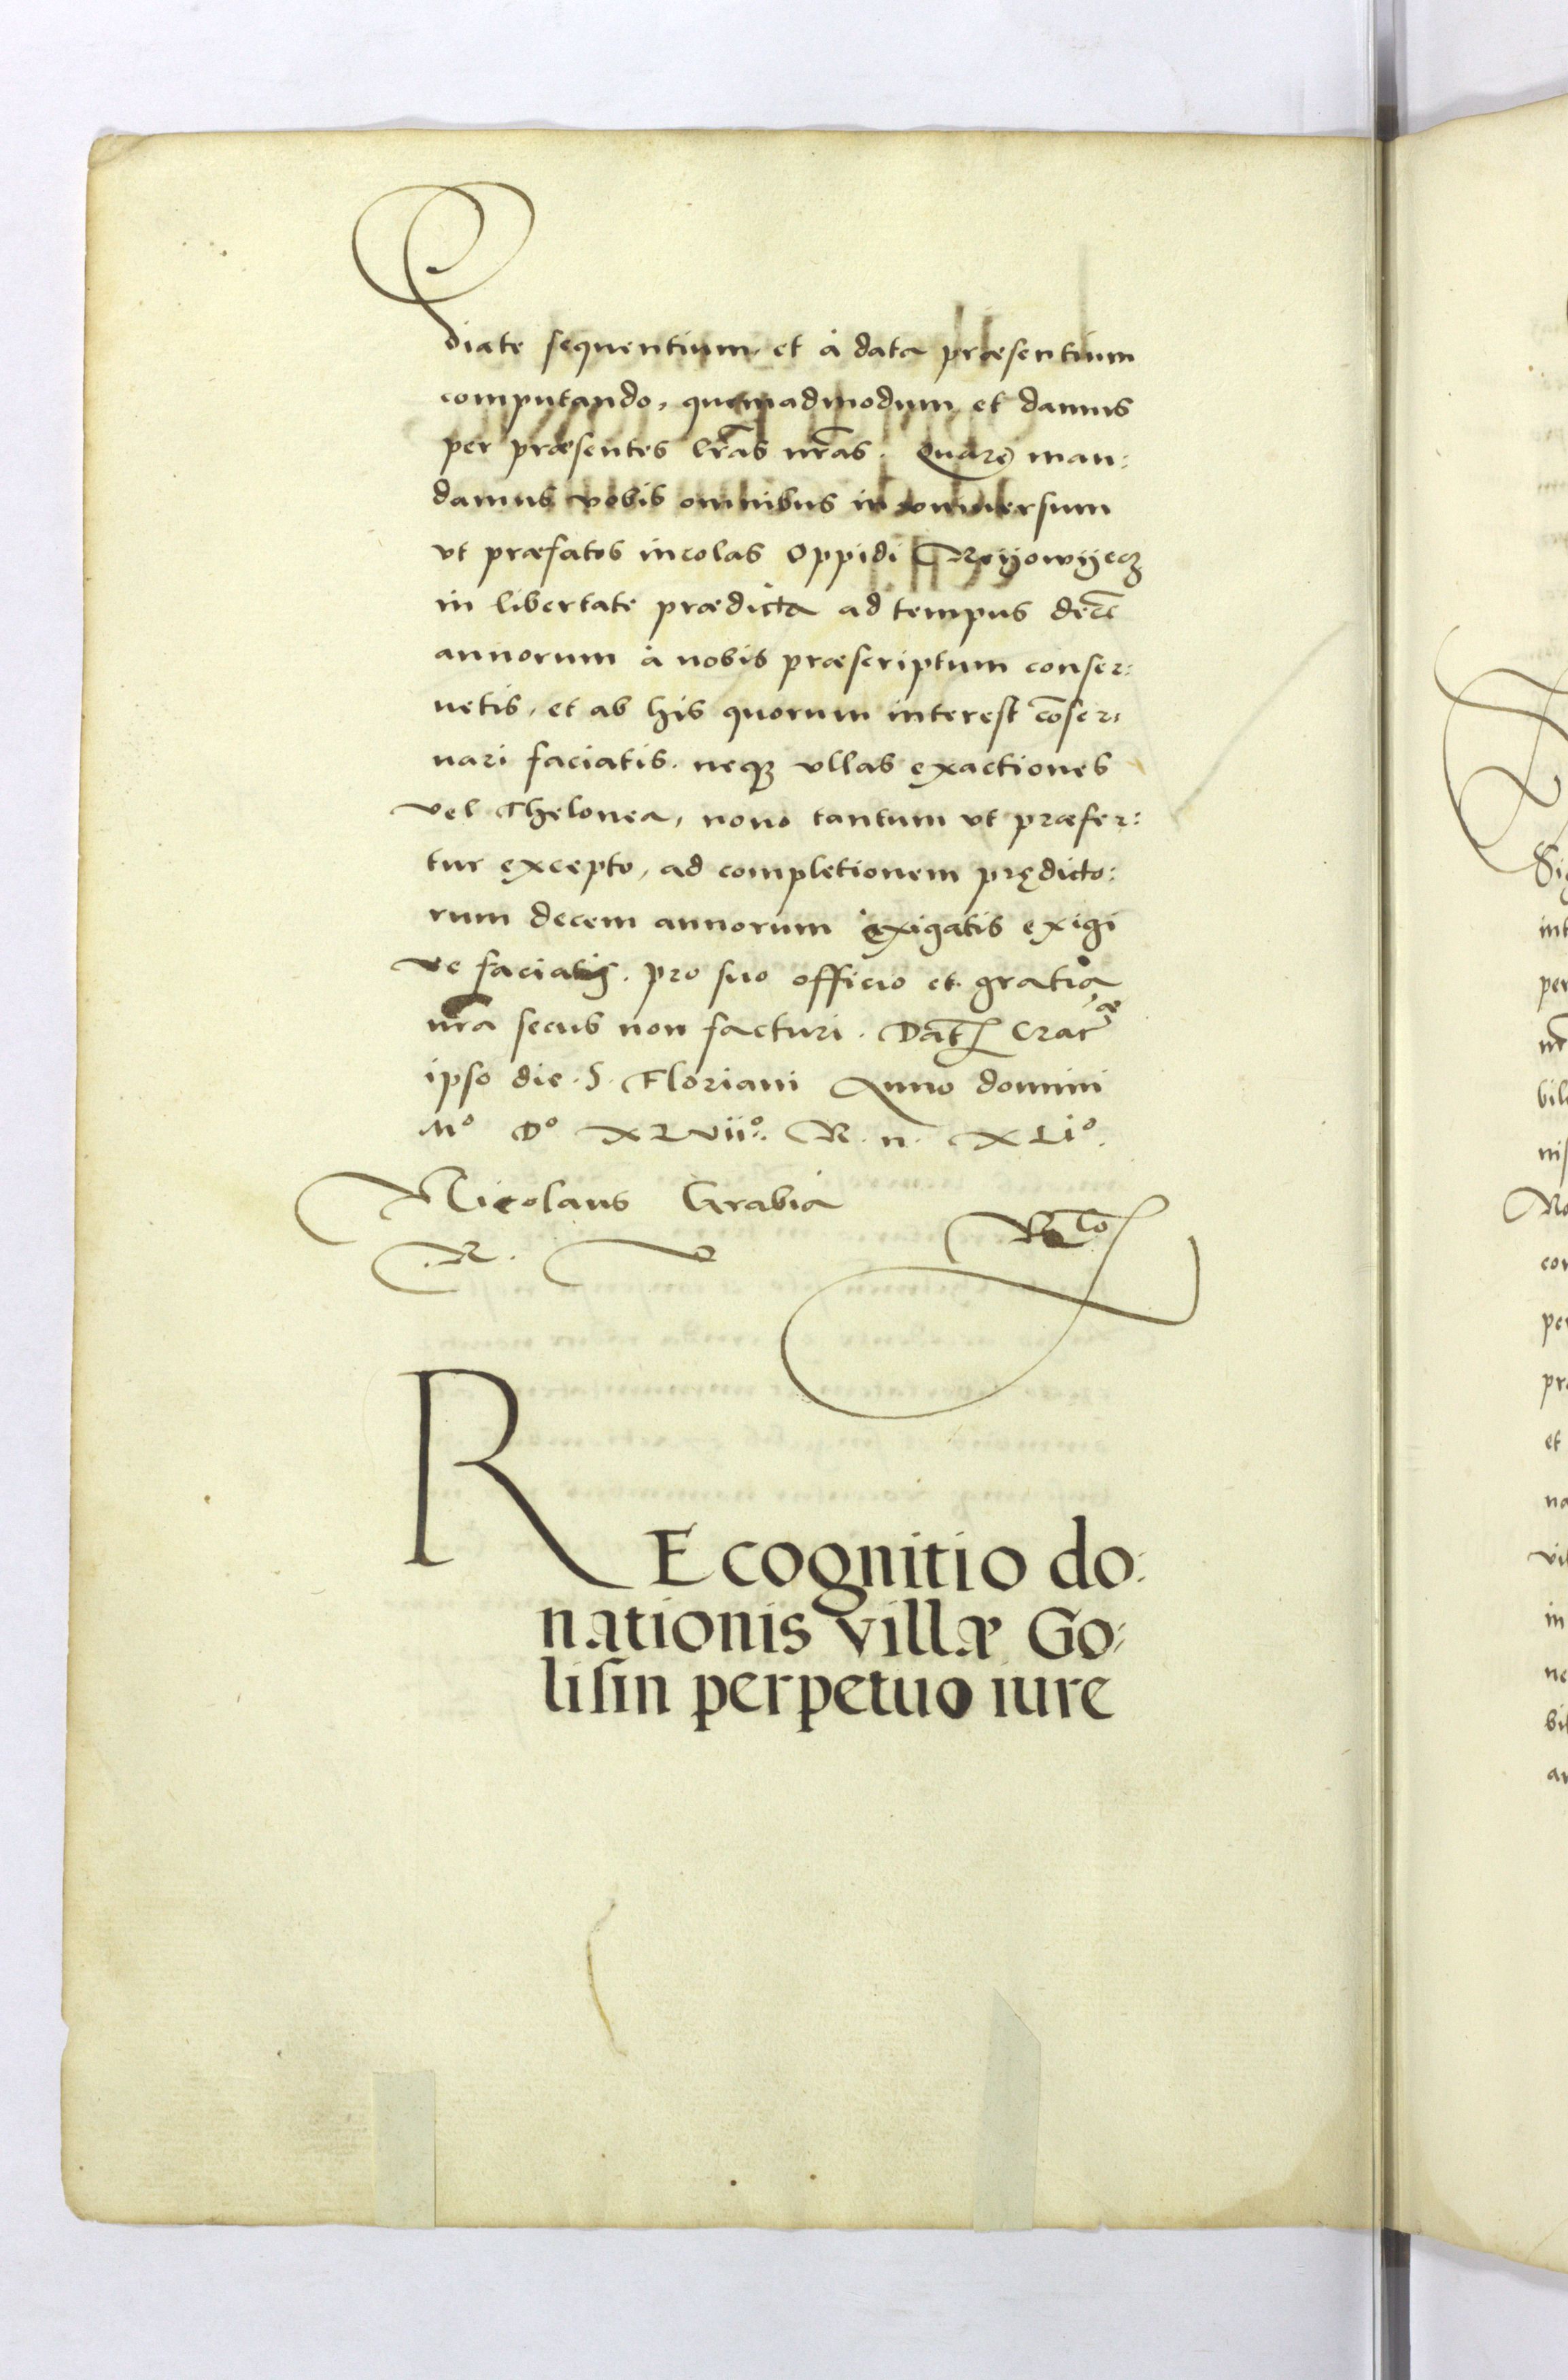 diate sequentium, et à data præsentium
computando, quemadmodum et damus
per præsentes lr̃as nr̃as. Quare man:
damus vobis omnibus in vniuersum
vt præfatos incolas Oppidi Reyowyecz
in libertate prædicta ad tempus decē
annorum à nobis præscriptum conser:
uetis, et ab his quorum interest cōser:
uari faciatis. neqꝫ vllas exactiones
vel Thelonea, nouo tantum vt præfer:
tur excepto, ad completionem prędicto:
rum decem annorum exigatis exigi
ve faciatis. pro suo officio et gratia
nr̃a secus non facturi. Dat Crac
ipso die .S. Floriani Anno domini
Mº Dº XLviiº. R. n. XLiº.
Nicolaus Grabia
.R.
REcognitio do:
nationis villæ Go:
lisin perpetuo iure